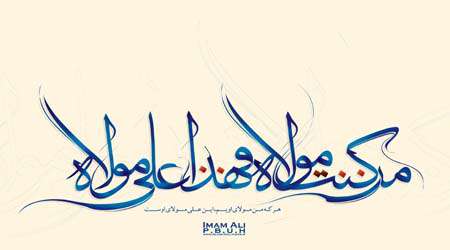 من کنت مولاه فهذا علی مولاه
هر که من مولای اویم این علی مولای اوست
IMAM ALI
P.B.U.H